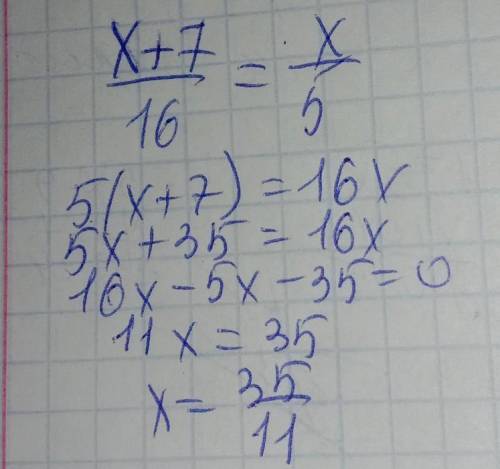 x+7/16 = x/5
5(x+7) = 16x
5x+35 = 16x
16x-5x-35=0
11x = 35
x = 35/11